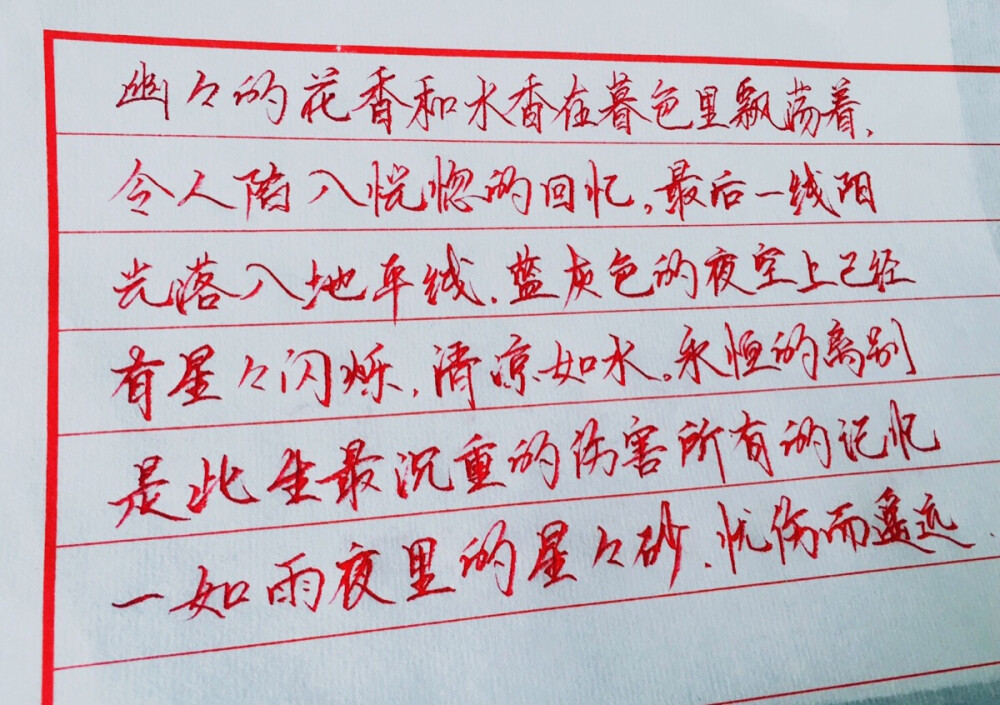 幽々的花香和水香在暮色里飘荡着,
令人陷入恍惚的回忆,最后一线阳
光落入地平线.蓝灰色的夜空上已经
有星々闪烁,清凉如水。永恒的离别
是此生最沉重的伤害所有的记忆
一如雨夜里的星々砂.忧伤而遥远.